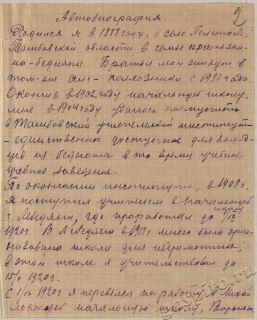 2
Автобиография
Родился я в 1888 году, в селе
Тамбовской области в семье крестьянина-
бедняка. Братья мои живут в
том-же селе - колхозники с 1930 года
Окончив в 1902 году начальную школу,
мне в 1904 году удалось поступить
в Тамбовский учительский институт -
единственное доступное для
из бедноты в то время учебное
учебное заведение.
По окончании института, в 1908 г.
я поступил учителем в начальную
школу
г. Лебедянь, где проработал до
1920 г. В Лебедяни в 191 мною была орга-
низована школа для неграмотных,
в этой школе я учительствовал до
15/ 1920 г.
С 1/ 1920 г. я перевелся на работу в
начальную школу,